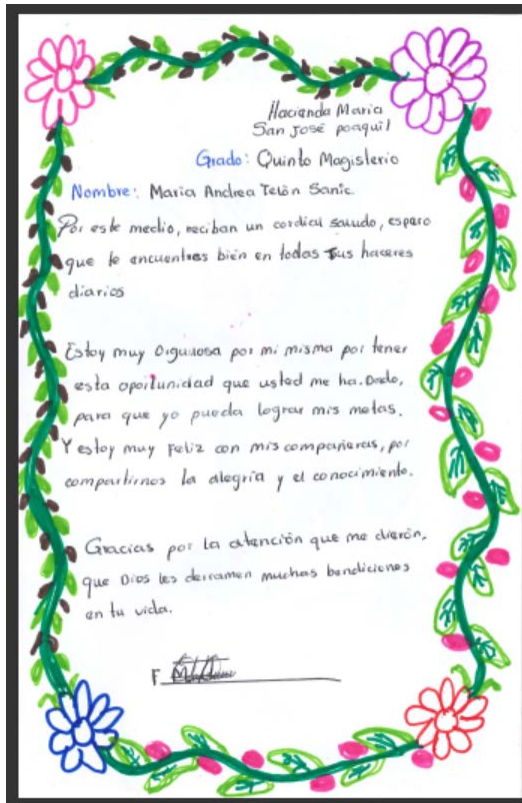 Hacienda Maria
San José poaquil
Grado: Quinto Magisterio
Nombre: Maria Andrea Telón Sanic.
Por este medio, reciban un cordial saludo, espero
que te encuentres bién en todas Tus haceres
diarios
Estoy muy Orgullosa por mi misma por tener
esta oportunidad que usted me ha. Dado,
para que yo pueda lograr mis metas.
Y estoy muy Feliz con mis compañeras, por
compartirnos la alegría y el conocimiento.
Gracias por la atención que me dierón,
que Dios les derramen muchas bendiciones
en tu vida.
F